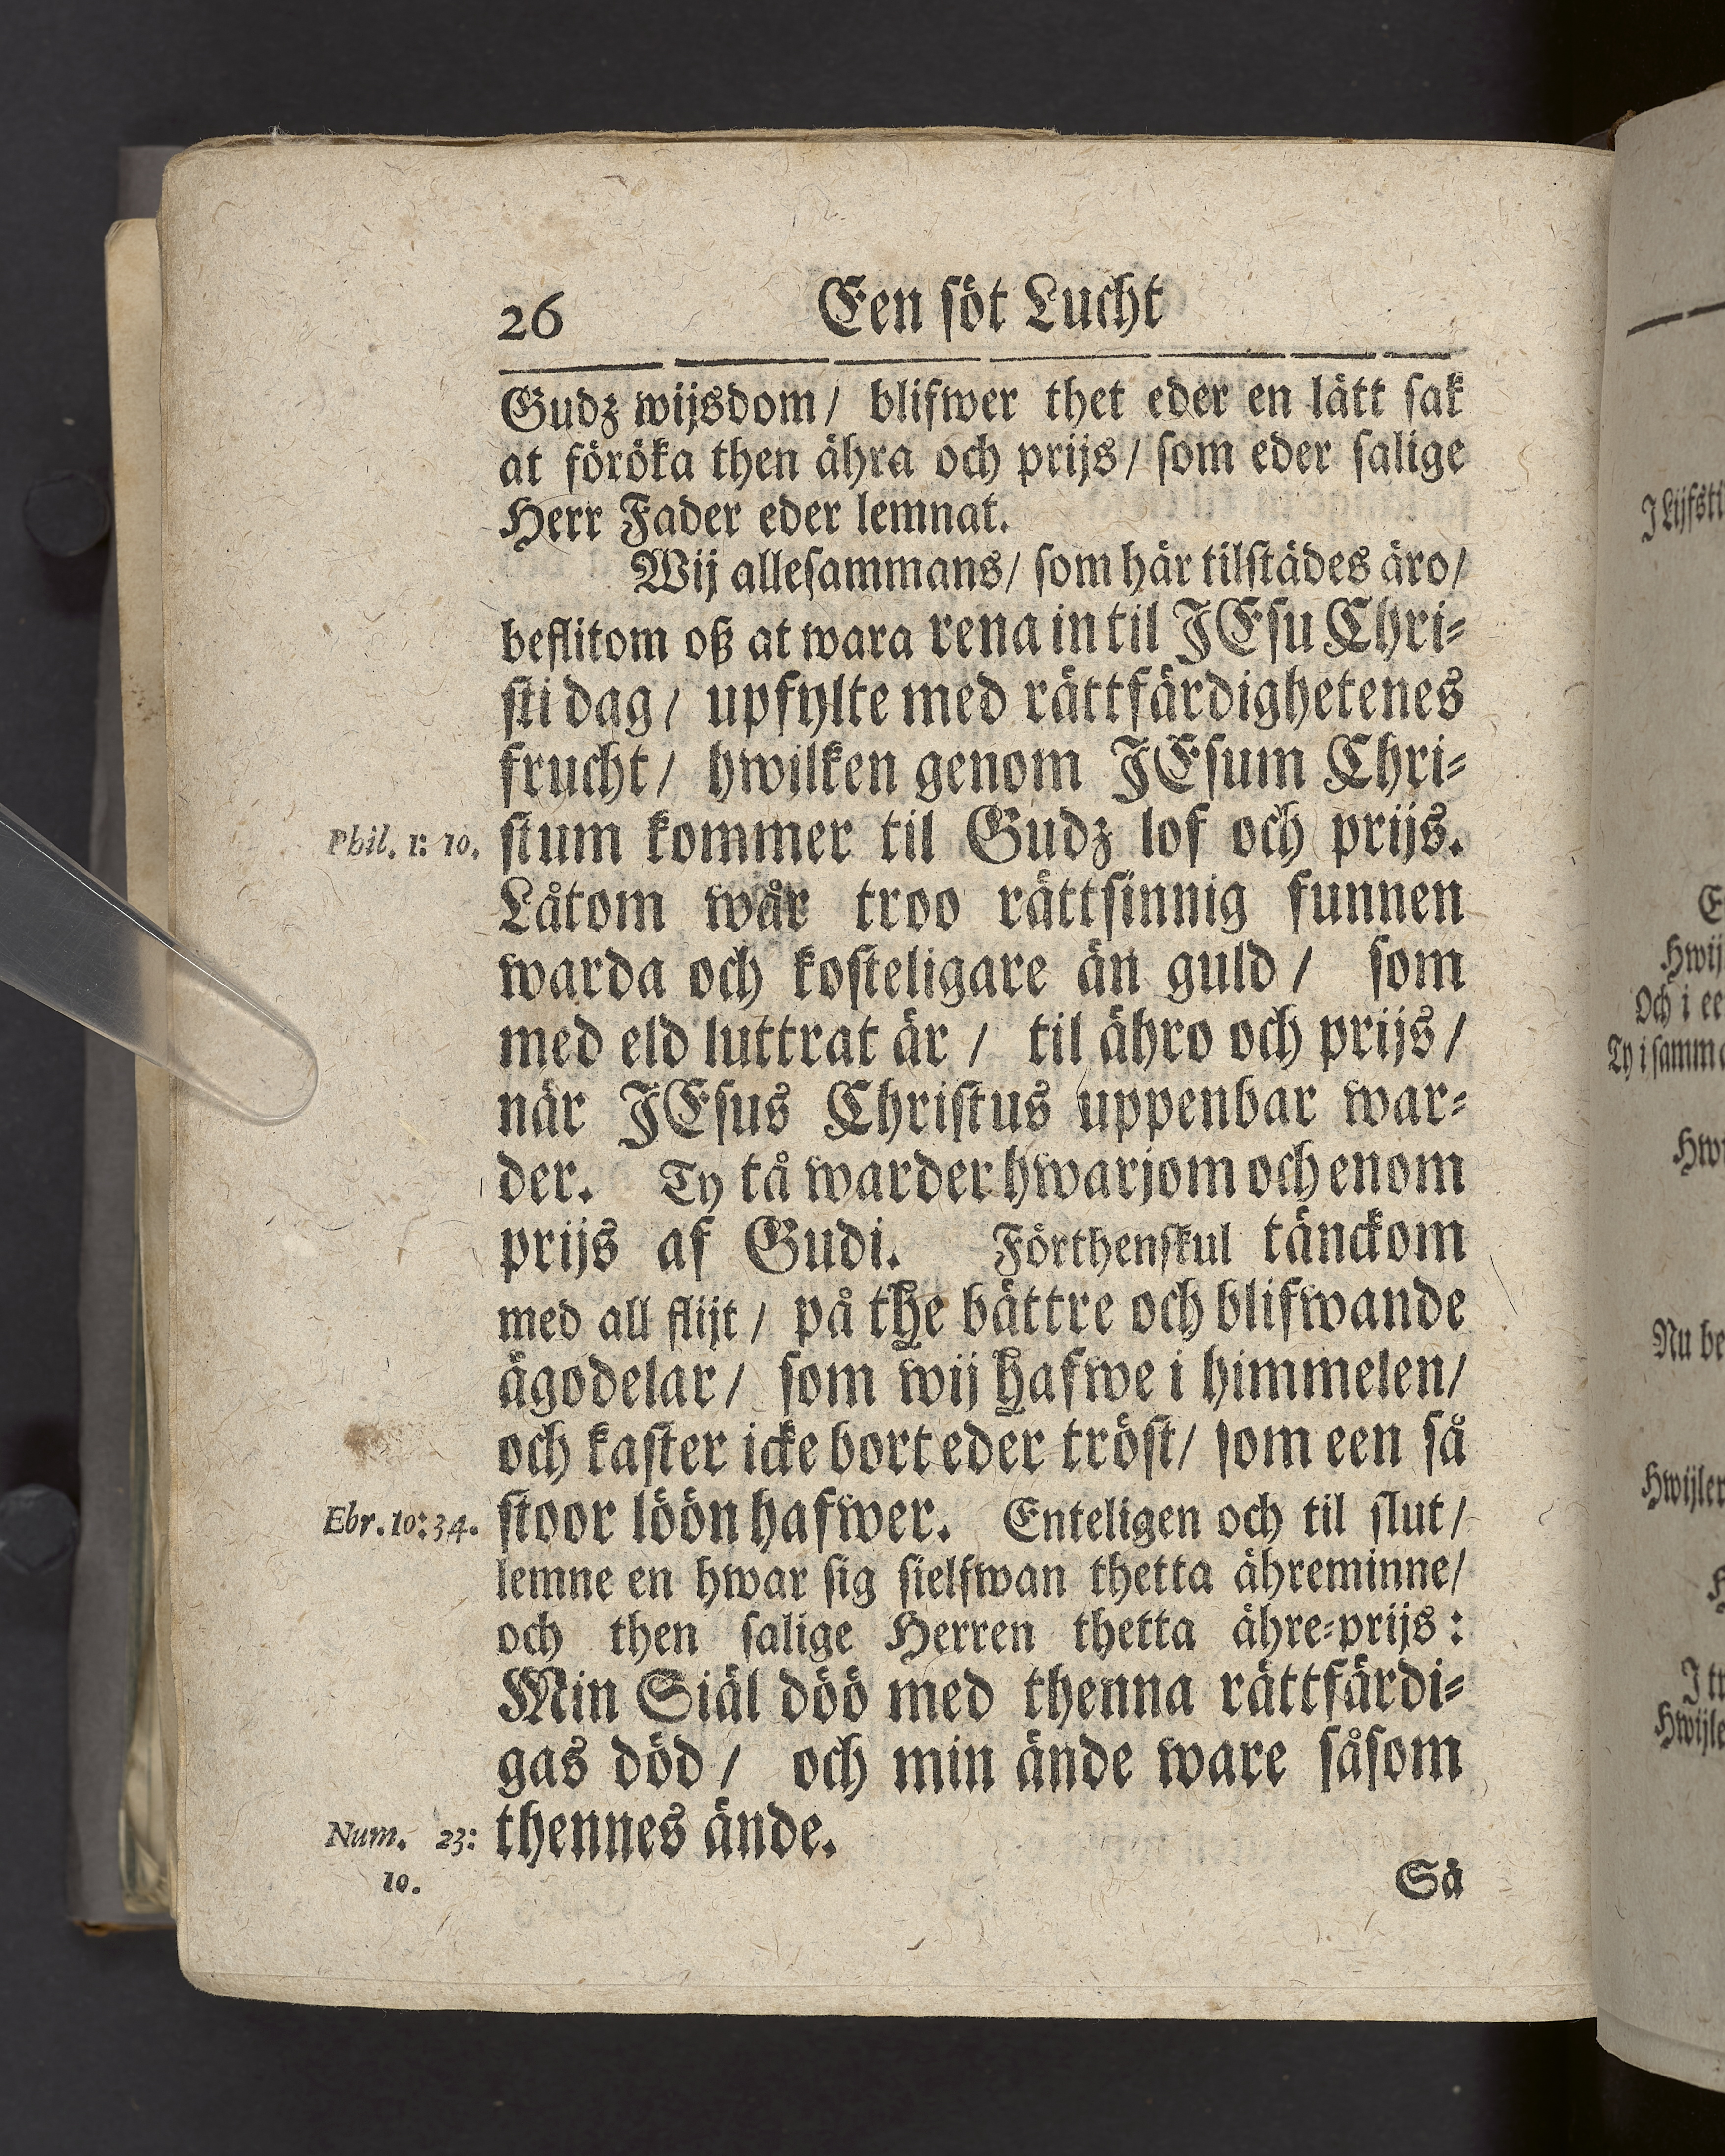 26 Een söt Lucht
Gudz wijsdom/ blifwer thet eder en lätt sak
at föröka then ähra och prijs/ som eder salige
Herr Fader eder lemnat.
Wij allesammans/ som här tilstädes äro/
beflitom oß at wara rena in til JEsu Chri-
sti dag/ upfylte med rättfärdighetenes
frucht/ hwilken genom JEsum Chri-
Phil. 1: 10. stum kommer til Gudz lof och prijs.
Låtom wår troo rättsinnig funnen
warda och kosteligare än guld/ som
med eld luttrat är/ til ähro och prijs/
när JEsus Christus uppenbar war-
der. Ty tå warder hwarjom och enom
prijs af Gudi. Förthenskul tänckom
med all flijt/ på the bättre och blifwande
ägodelar/ som wij hafwe i himmelen/
och kaster icke bort eder tröst/ som een så
Ebr. 10: 34. stoor löön hafwer. Enteligen och til slut/
lemne en hwar sig sielfwan thetta ähreminne/
och then salige Herren thetta ähre-prijs:
Min Siäl döö med thenna rättfärdi-
gas död/ och min ände ware såsom
Num. 23: thennes ände.
10.
Så
J Lijfsti
Hwij
Och i ee
Ty i samma
Nu be
Hwijler
J tr
Hwijle